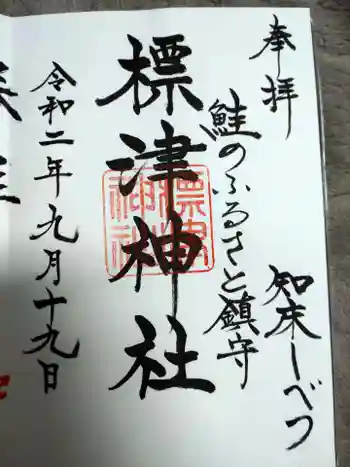 奉拝
知床しべつ
鮭のふるさと鎮守
標津神社
標津神社
令和二年九月十九日